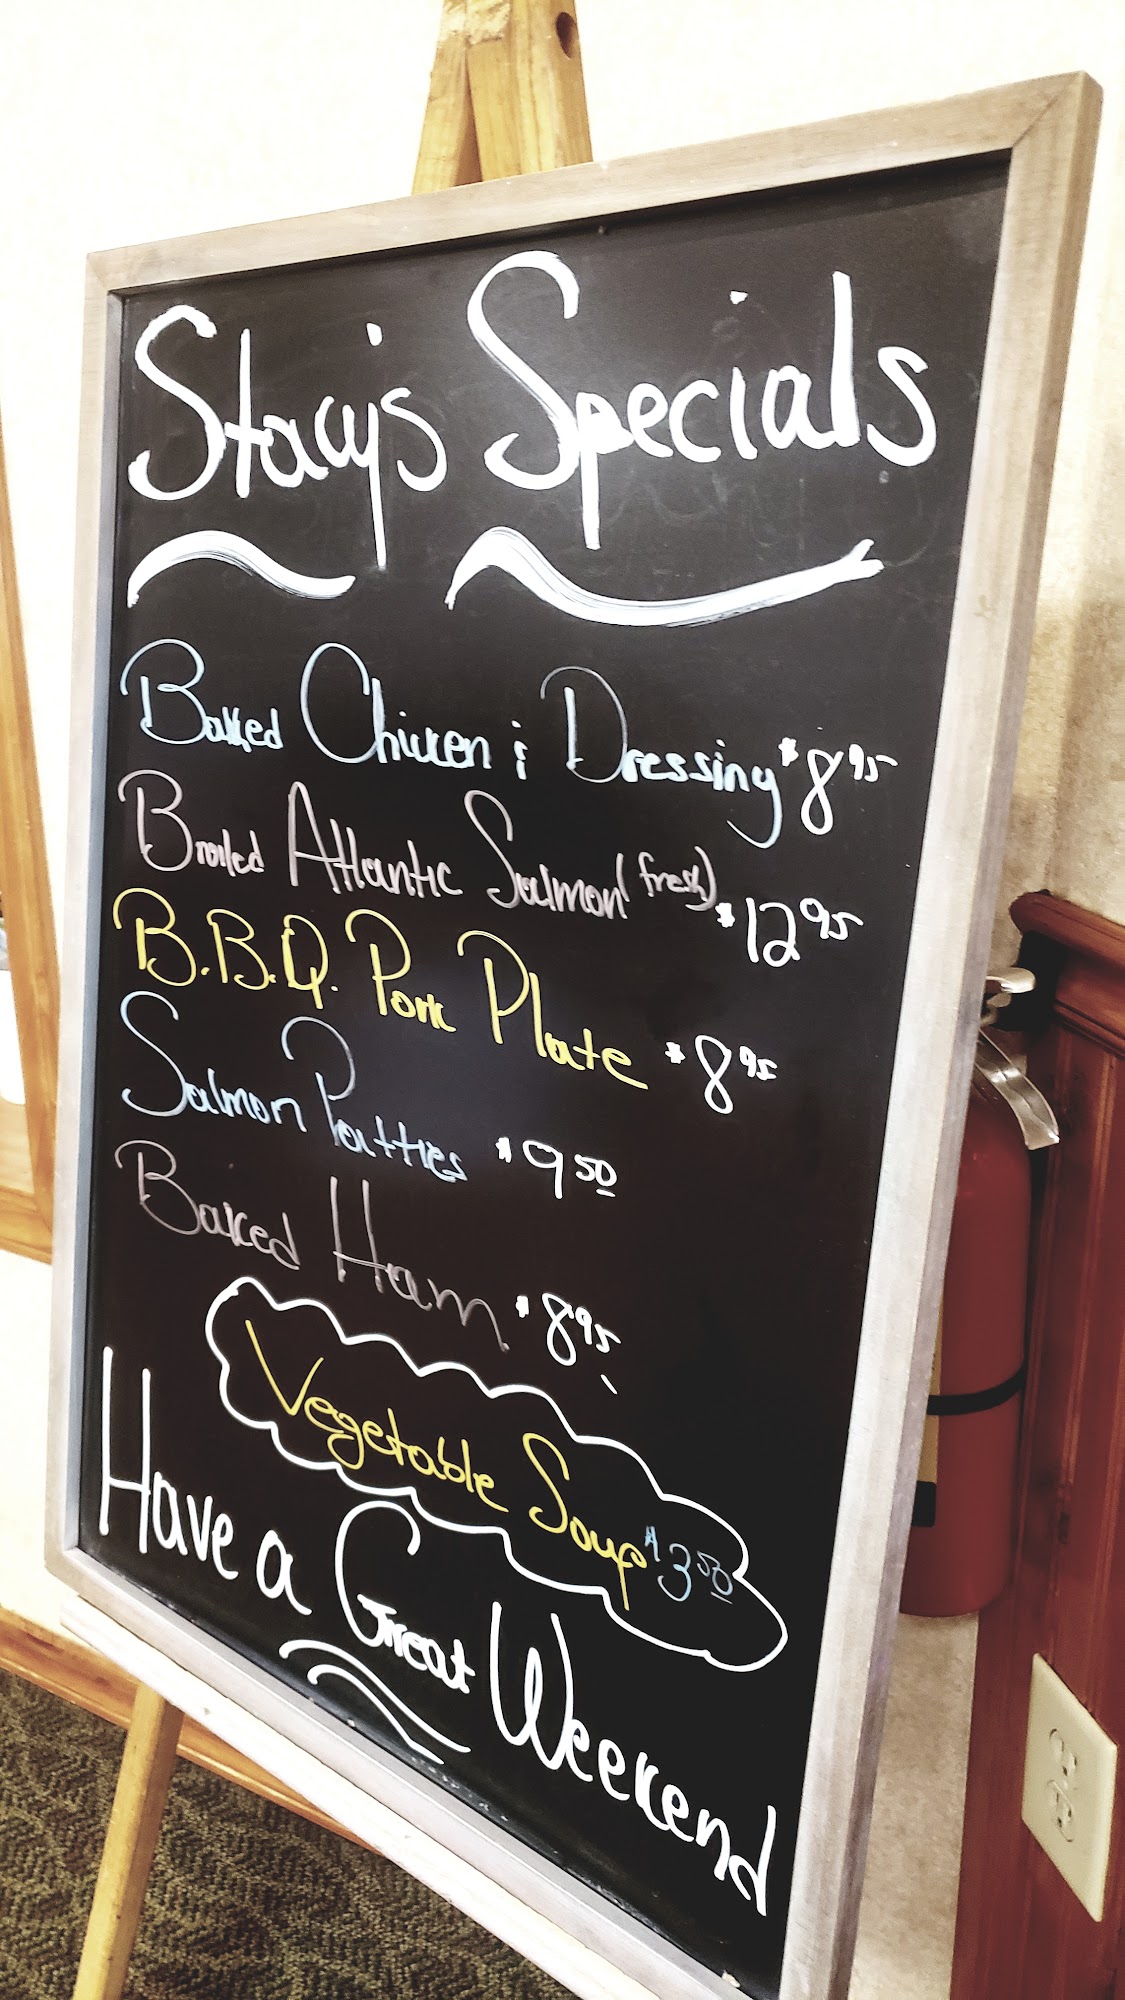 Stacy's Specials
Baked Chicken & Dressing $8.95
Broiled Atlantic Salmon (fresh) $12.95
B.B.Q. Pork Plate $8.95
Salmon Patties $9.50
Baked Ham $8.95
Vegetable Soup $3.50
Have a Great Weekend